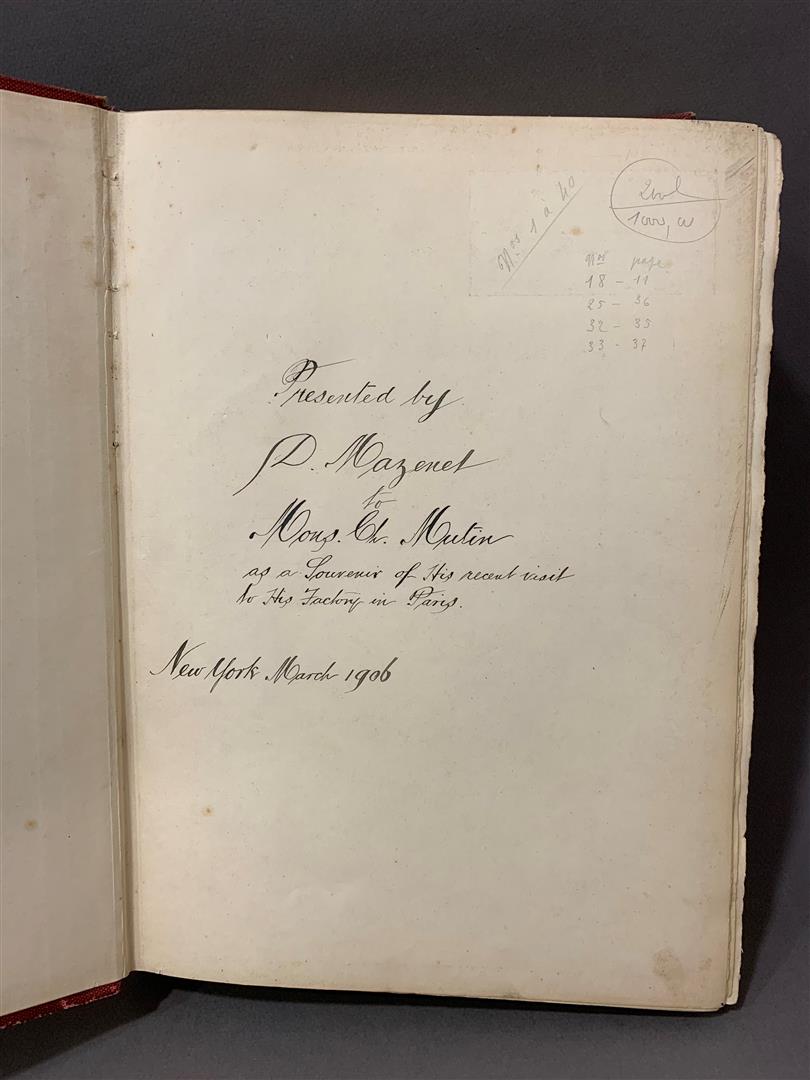 Nos 1 à 40
2 vol
1000,00
Nos page
18 - 11
25 - 36
32 - 35
33 - 37
Presented by
D. Mazenet
to
Mons. Ch. Mutin
as a Souvenir of His recent visit
to His Factory in Paris.
New York March 1906